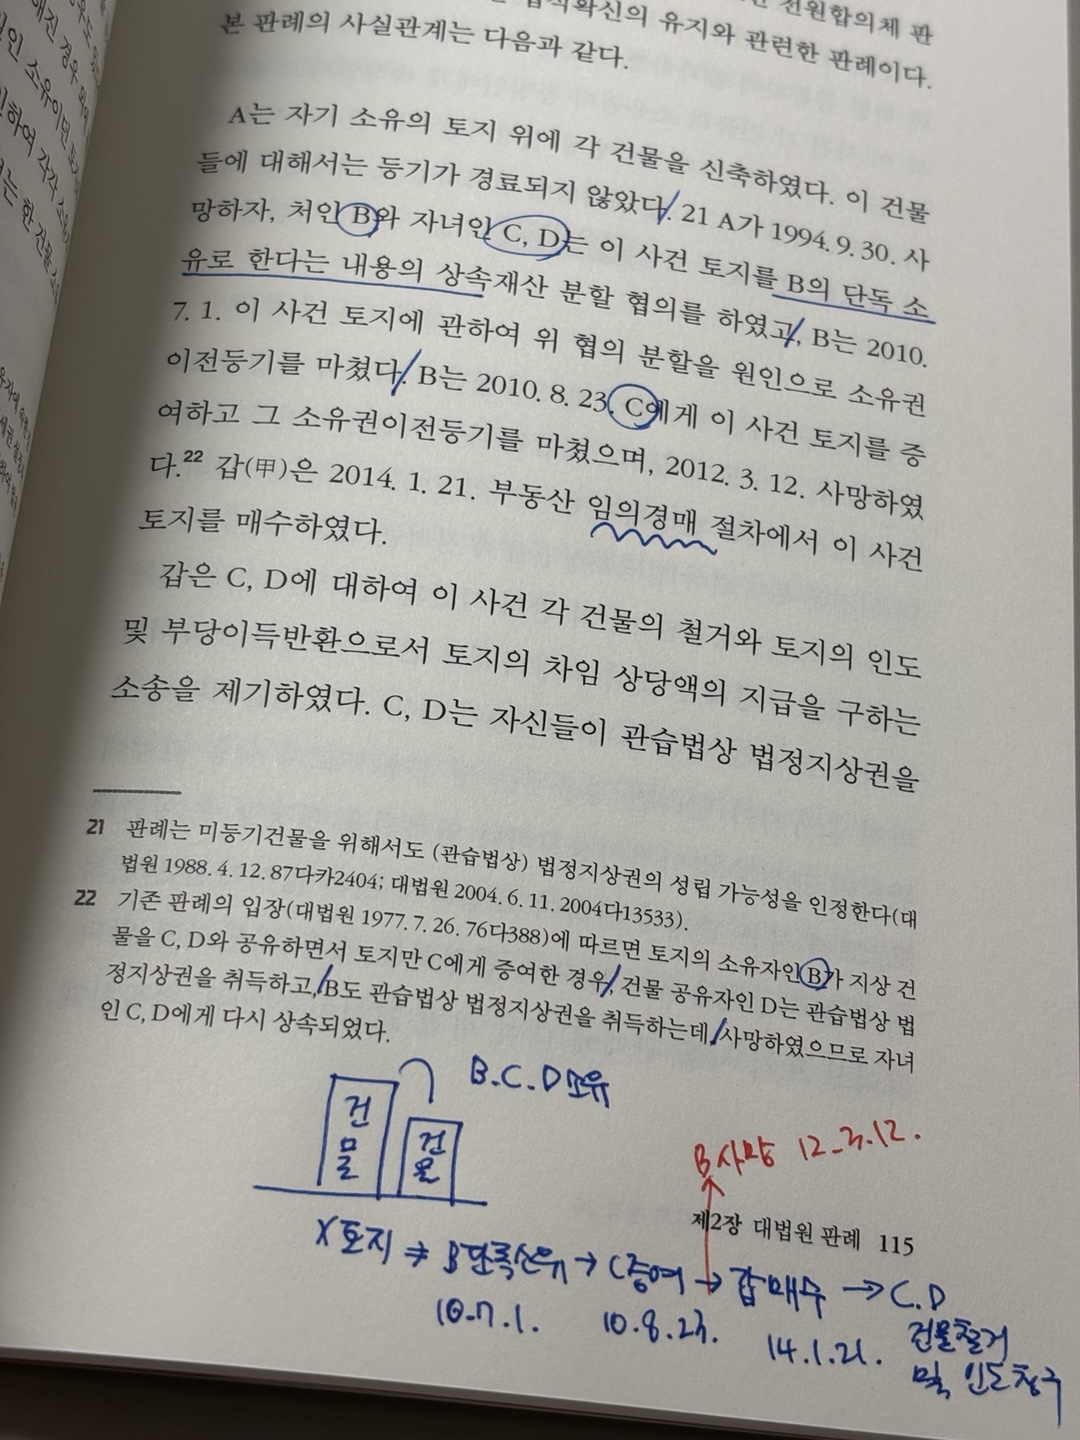 법적확신의 유지와 관련한 전원합의체 판
본 판례의 사실관계는 다음과 같다. 판례이다.
A는 자기 소유의 토지 위에 각 건물을 신축하였다. 이 건물
들에 대해서는 등기가 경료되지 않았다. 21 A가 1994. 9. 30. 사
망하자, 처인 B와 자녀인 C, D는 이 사건 토지를 B의 단독 소
유로 한다는 내용의 상속재산 분할 협의를 하였고, B는 2010.
7. 1. 이 사건 토지에 관하여 위 협의 분할을 원인으로 소유권
이전등기를 마쳤다. B는 2010. 8. 23. C에게 이 사건 토지를 증
여하고 그 소유권이전등기를 마쳤으며, 2012. 3. 12. 사망하였
다.22 갑(甲)은 2014. 1. 21. 부동산 임의경매 절차에서 이 사건
토지를 매수하였다.
갑은 C, D에 대하여 이 사건 각 건물의 철거와 토지의 인도
및 부당이득반환으로서 토지의 차임 상당액의 지급을 구하는
소송을 제기하였다. C, D는 자신들이 관습법상 법정지상권을
21 판례는 미등기건물을 위해서도 (관습법상) 법정지상권의 성립 가능성을 인정한다(대
법원 1988. 4. 12. 87다카2404; 대법원 2004. 6. 11. 2004다13533).
22 기존 판례의 입장(대법원 1977. 7. 26. 76다388)에 따르면 토지의 소유자인 B가 지상 건
물을 C, D와 공유하면서 토지만 C에게 증여한 경우, 건물 공유자인 D는 관습법상 법
정지상권을 취득하고, B도 관습법상 법정지상권을 취득하는데, 사망하였으므로 자녀
인 C, D에게 다시 상속되었다.
건물 건물 B.C.D 소유
B사망 12.3.12.
제2장 대법원 판례 115
X토지 ⇒ B단독소유 → C증여 → 갑매수 → C.D
10.7.1. 10.8.23. 14.1.21. 건물철거
및 인도청구